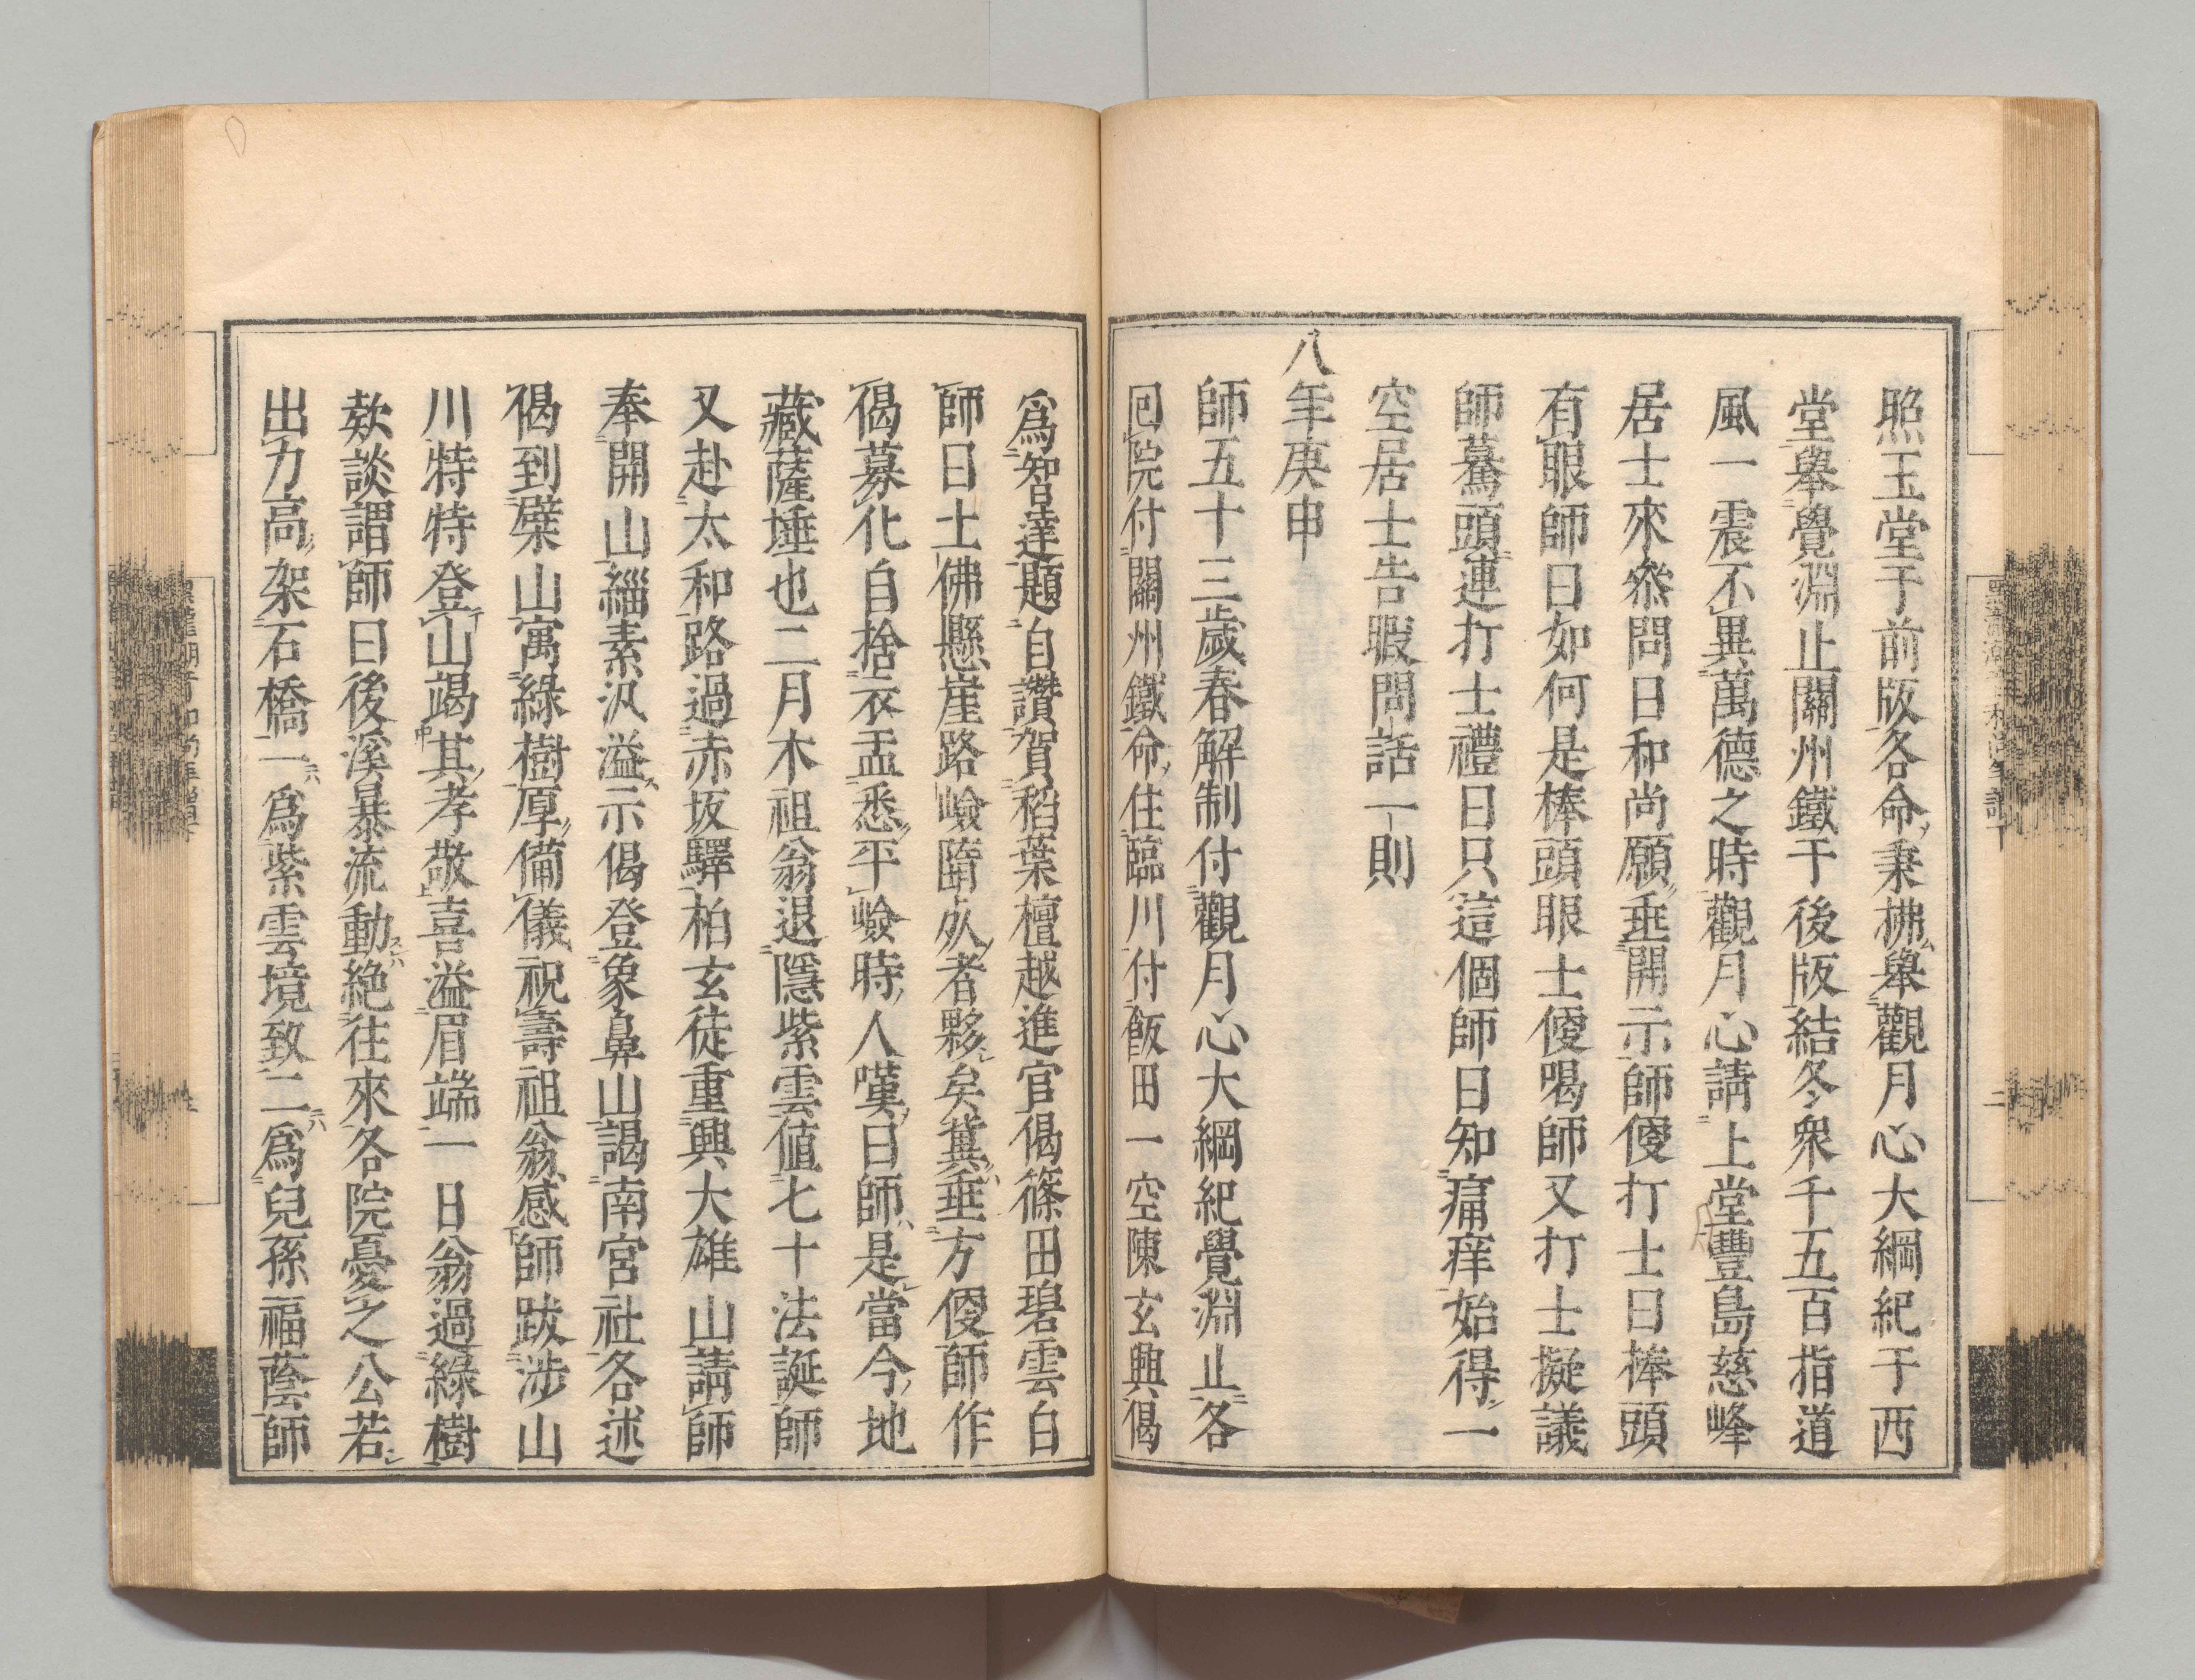 照玉堂于前版各命秉拂舉觀月心大綱紀于西
堂舉覺淵止關州鐵于後版結冬衆千五百指道
風一震不異萬德之時觀月心請上堂豐島慈峰
居士來叅問曰和尚願垂開示師便打士曰棒頭
有眼師曰如何是棒頭眼士便喝師又打士擬議
師驀頭連打士禮曰只這個師曰知痛痒始得一
空居士告暇問話一則
八年庚申
師五十三歲春解制付觀月心大綱紀覺淵止各
回院付關州鐵命住臨川付飯田一空陳玄興偈
爲智達題自讚賀稻葉檀越進官偈篠田碧雲白
師曰土佛懸崖路嶮墮㱕者夥矣冀垂方便師作
偈募化自捨衣盂悉平嶮時人嘆曰師是當今地
藏薩埵也二月木祖翁退隱紫雲値七十法誕師
又赴太和路過赤坂驛柏玄徒重興大雄山請師
奉開山緇素汎溢示偈登象鼻山謁南宮社各述
偈到檗山寓綠樹厚備儀祝壽祖翁感師跋涉山
川特特登山竭其孝敬喜溢眉端一日翁過綠樹
欵談謂師曰後溪暴流動絶往來各院憂之公若
出力高架石橋一爲紫雲境致二爲兒孫福蔭師